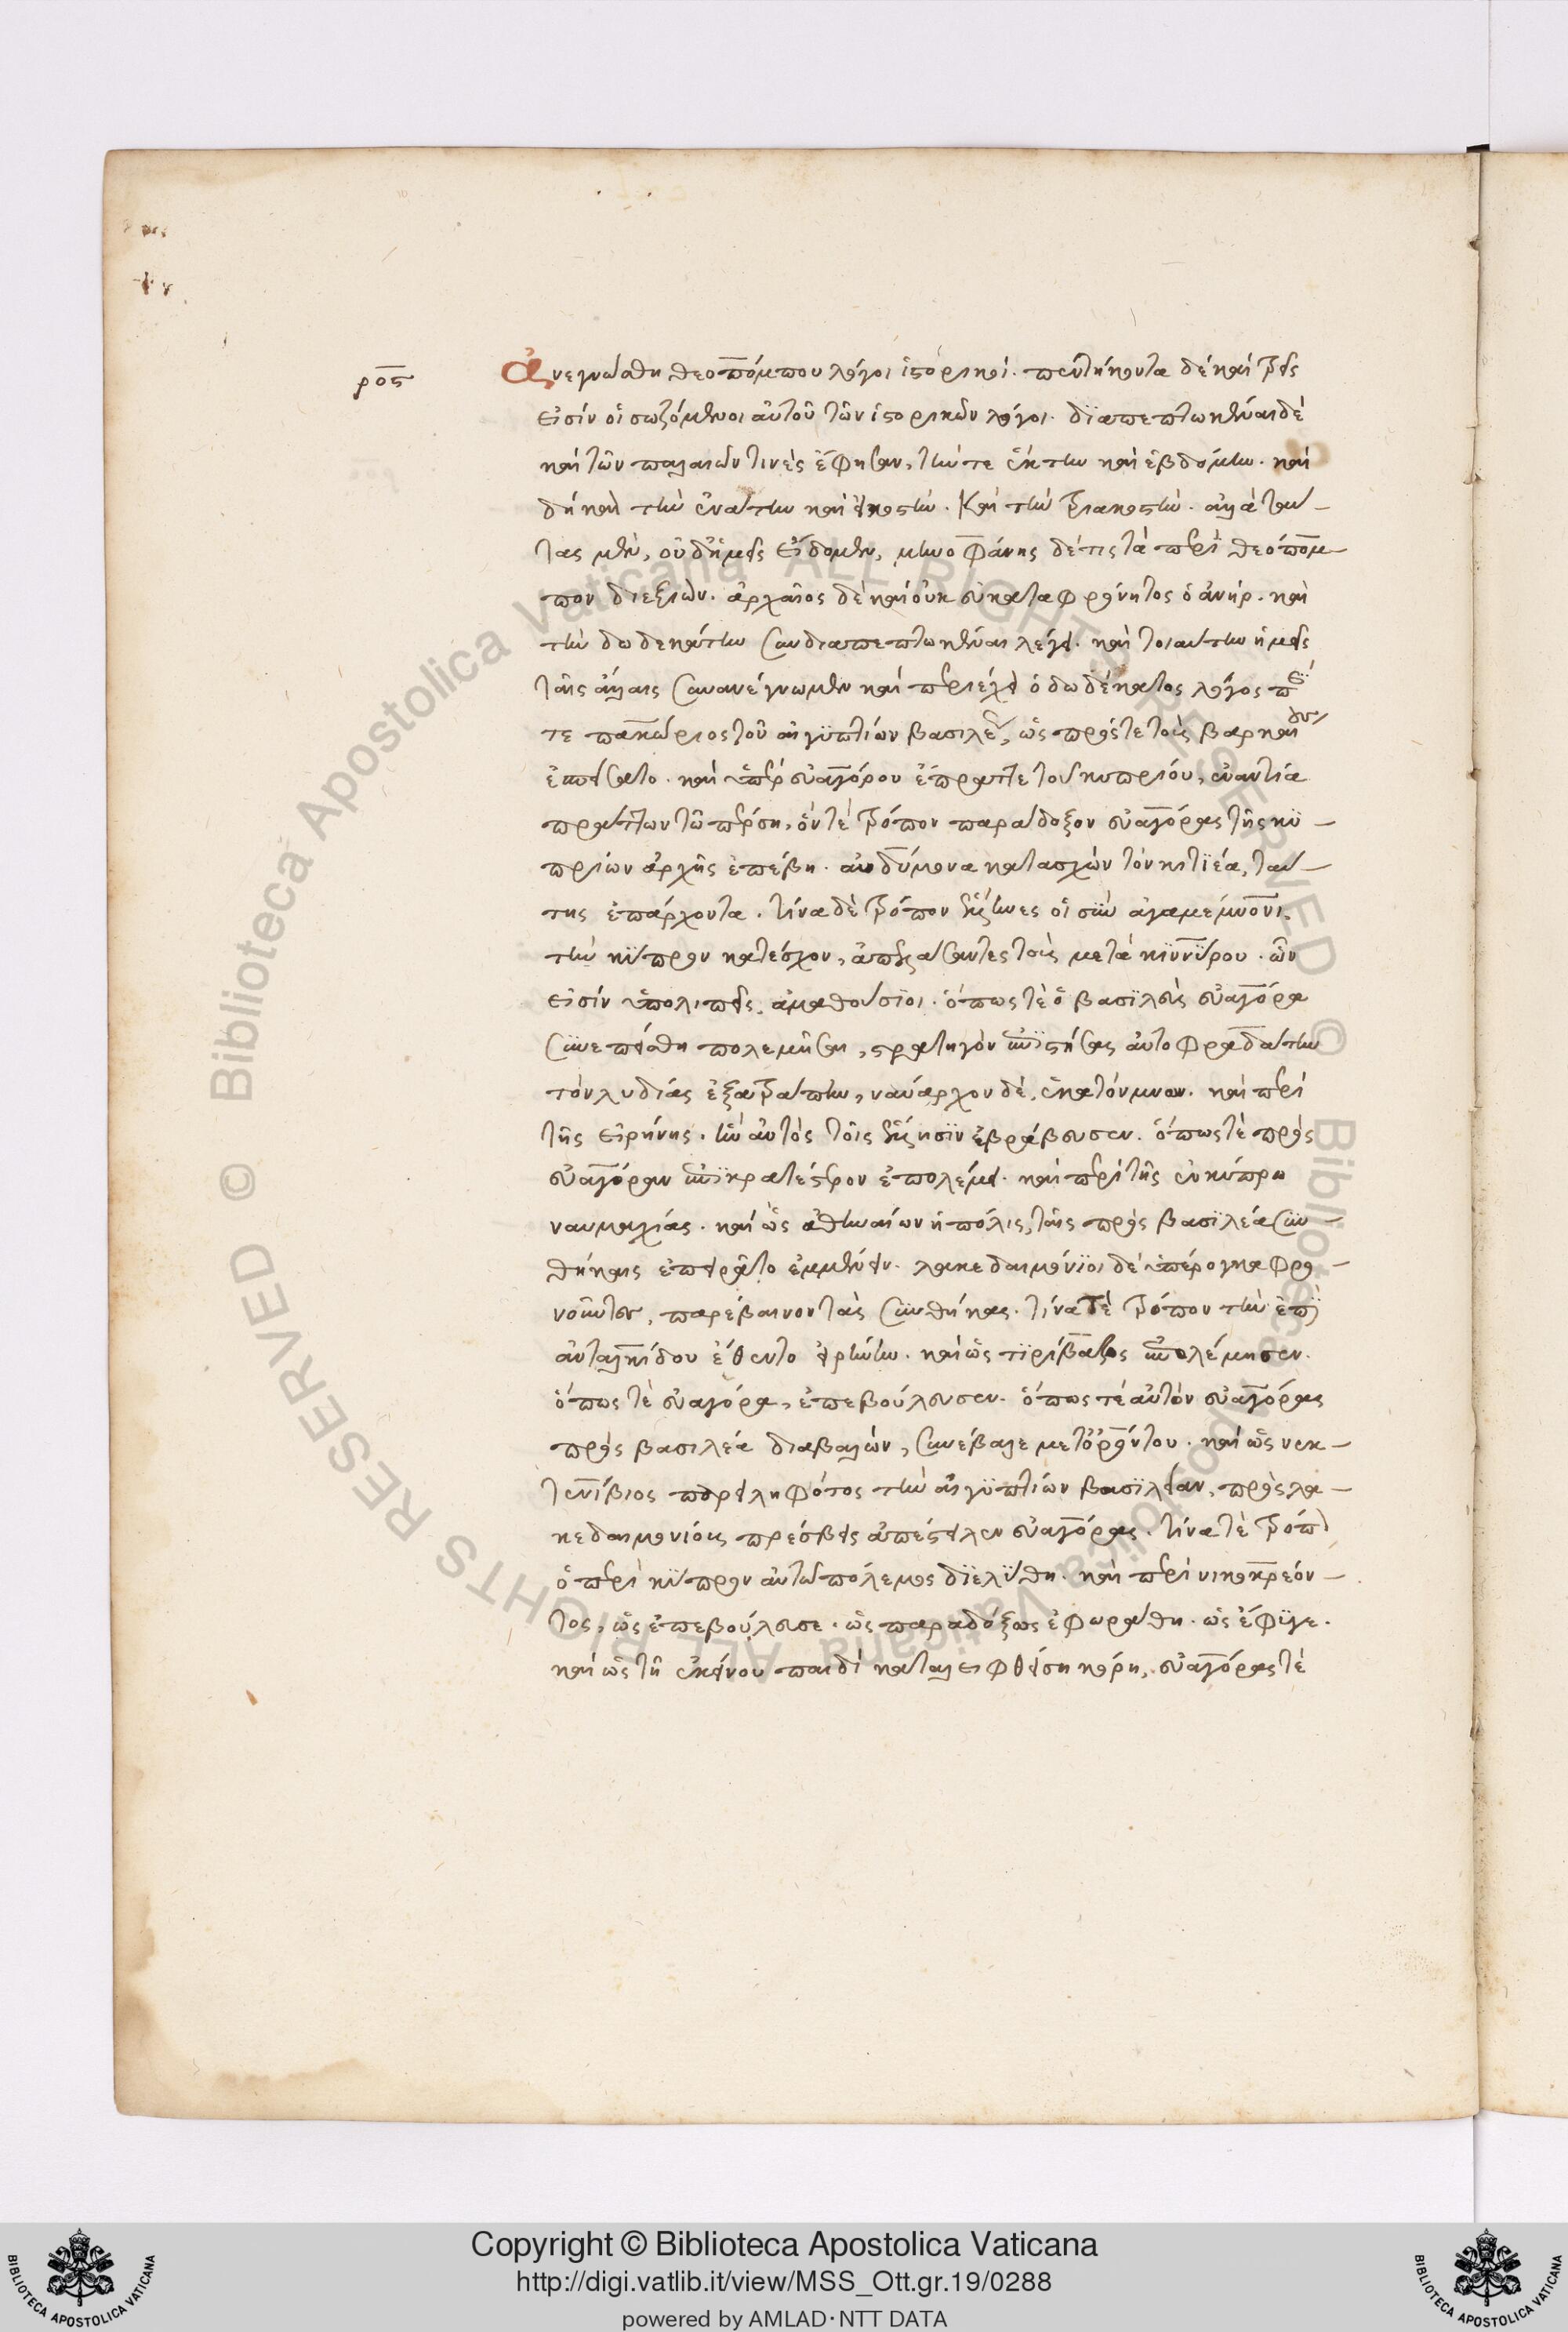 ρος
ἀνεγνώσθη θεοπόμπου λόγοι ἱστορικοί. πεντήκοντα δὲ καὶ τρεῖς
εἰσίν οἱ σωζόμενοι αὐτοῦ τῶν ἱστορικῶν λόγοι. διαπεπτωκέναι δὲ
καὶ τῶν παλαιῶν τινὲς ἔφησαν, τήν τε ἕκτην καὶ ἑβδόμην. καὶ
δὴ καὶ τὴν ἐνάτην καὶ εἰκοστὴν. καὶ τὴν τριακοστὴν. ἀλλὰ ταύ-
τας μὲν, οὐδ' ἡμεῖς εἴδομεν, μηνοφάνης δέ τις τὰ περὶ θεόπομ-
πον διεξιὼν. ἀρχαῖος δὲ καὶ οὐκ εὐκαταφρόνητος ὁ ἀνήρ. καὶ
τὴν δωδεκάτην συνδιαπεπτωκέναι λέγει. καὶ τοιαύτην ἡμεῖς
ταῖς ἄλλαις συνανέγνωμεν καὶ περιέχει ὁ δωδέκατος λόγος πε
τε πακώριος τοῦ αἰγυπτίων βασιλέ, ὡς πρός τε τοὺς βαρκαί
ους
ἐπείσατο. καὶ ὑπὲρ εὐαγόρου ἔπραττε τοῦ κυπρίου, ἐναντία
πράττων τῷ πέρση, ὅν τε τρόπον παράδοξον εὐαγόρας τῆς κυ-
πρίων ἀρχῆς ἐπέβη. αὐδύμονα κατασχὼν τὸν κιτιέα, ταύ-
της ἐπάρχοντα. τίνα δὲ τρόπον ἕλληνες οἱ σὺν ἀγαμέμνονι.
τὴν κύπρον κατέσχον, ἀπελάσαντες τοὺς μετὰ κιννύρου. ὧν
εἰσίν ὑπολιπεῖς, ἀμαθούσιοι. ὅπως τὲ ὁ βασιλεὺς εὐαγόρα
συνεπείσθη πολεμῆσαι, στρατηγὸν ἐπιστήσας αὐτοφραδάτην
τὸν λυδίας ἐξατράπην, ναύαρχον δὲ, ἑκατόνμνων. καὶ περὶ
τῆς εἰρήνης. ἣν αὐτὸς τοῖς ἕλλησιν ἐβράβευσεν. ὅπως τὲ πρὸς
εὐαγόραν ἐπικρατέστερον ἐπολέμει. καὶ περὶ τῆς ἐν κύπρω
ναυμαχίας. καὶ ὡς ἀθηναίων ἡ πόλις, ταῖς πρὸς βασιλέα συν-
θήκαις ἐπειρᾶτο ἐμμένειν. λακεδαιμόνιοι δὲ ὑπέρογκα φρο-
νοῦντες, παρέβαινον τὰς συνθήκας. τίνα τὲ τρόπον τὴν ἐπὶ
ἀνταλκίδου ἔθεντο εἰρήνην. καὶ ὡς τιρίβαζος ἐπολέμησεν.
ὅπως τὲ εὐαγόρα, ἐπεβούλευσεν. ὅπως τέ αὐτὸν εὐαγόρας
πρὸς βασιλέα διαβαλὼν, συνέβαλε μετ' ὀρόντου. καὶ ὡς νεκ-
τενίβιος παρειληφότος τὴν αἰγυπτίων βασιλείαν, πρὸς λα-
κεδαιμονίους πρέσβεις ἀπέστειλεν εὐαγόρας. τίνα τὲ τρόπ
ὁ περὶ κύπρον αὐτῷ πόλεμος διελύθη. καὶ περὶ νικοκρέον-
τος, ὡς ἐπεβούλευσε. ὡς παραδόξως ἐφωράθη. ὡς ἔφυγε.
καὶ ὡς τῇ ἐκείνου παιδὶ καταλειφθείσῃ κόρῃ, εὐαγόρας τὲ
Copyright © Biblioteca Apostolica Vaticana
http://digi.vatlib.it/view/MSS_Ott.gr.19/0288
powered by AMLAD·NTT DATA